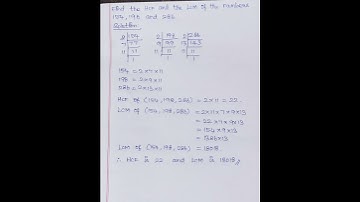 Find the HCF and the LCM of the numbers
154, 198 and 286
Solution
2 154 2 198 2 286
7 77 9 99 13 143
11 11 11 11 11 11
1 1 1
154 = 2×7×11
198 = 2×9×11
286 = 2×13×11
HCF of (154, 198, 286) = 2×11 = 22.
LCM of (154, 198, 286) = 2×11×7×9×13
= 22×7×9×13
= 154×9×13
= 1386×13
LCM of (154, 198, 286) = 18018
∴ HCF is 22 and LCM is 18018